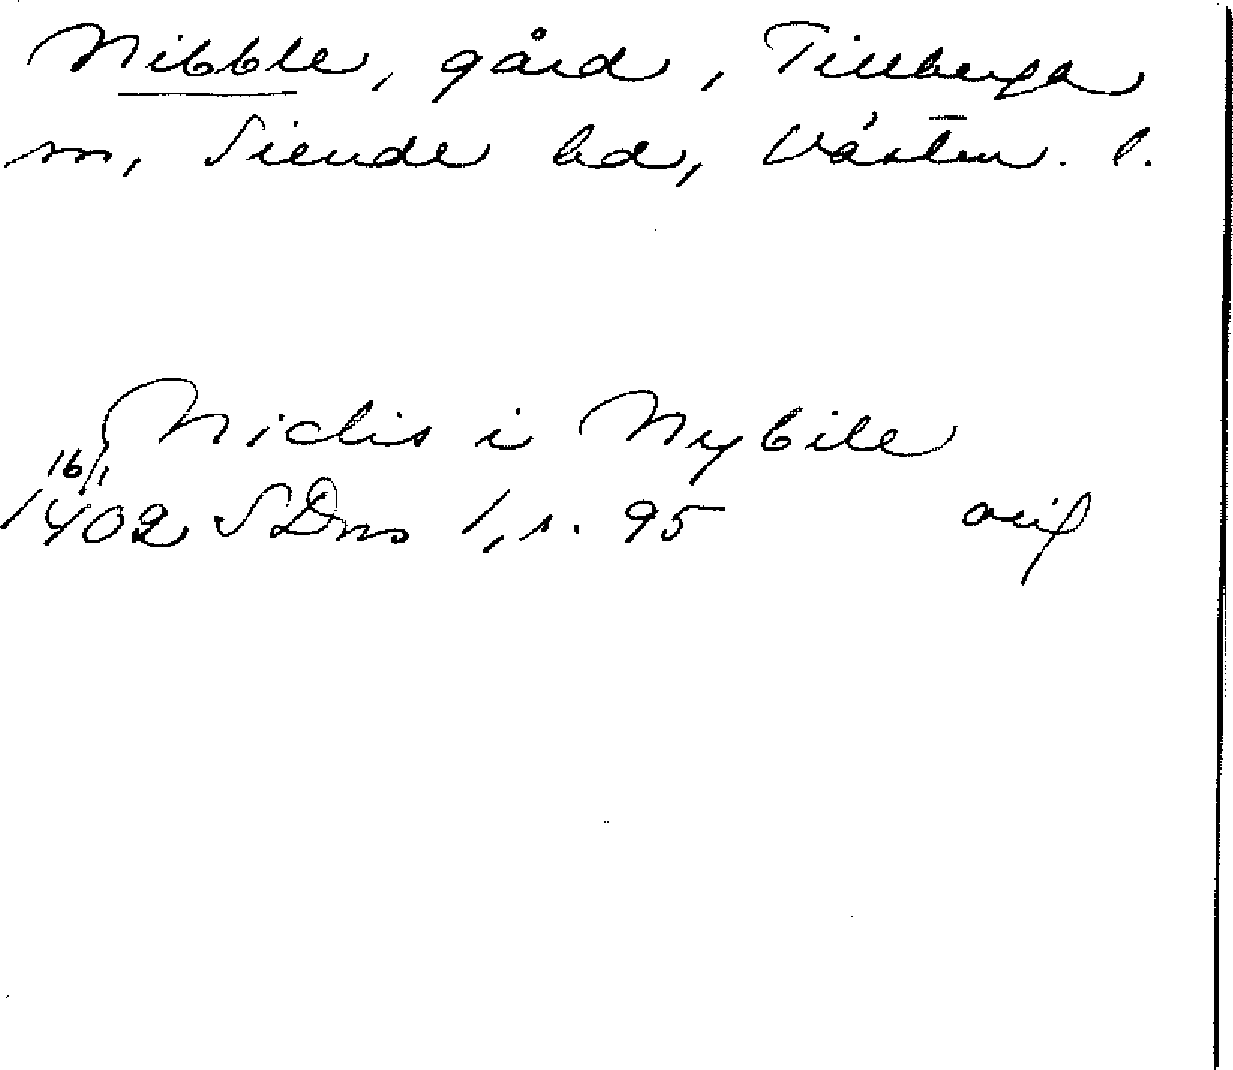 Nibble, gård, Tillberga
sn, Siende hd, Västm. l.
Niclis i Nybile
16/1
1402 SDns 1, s. 95 orig